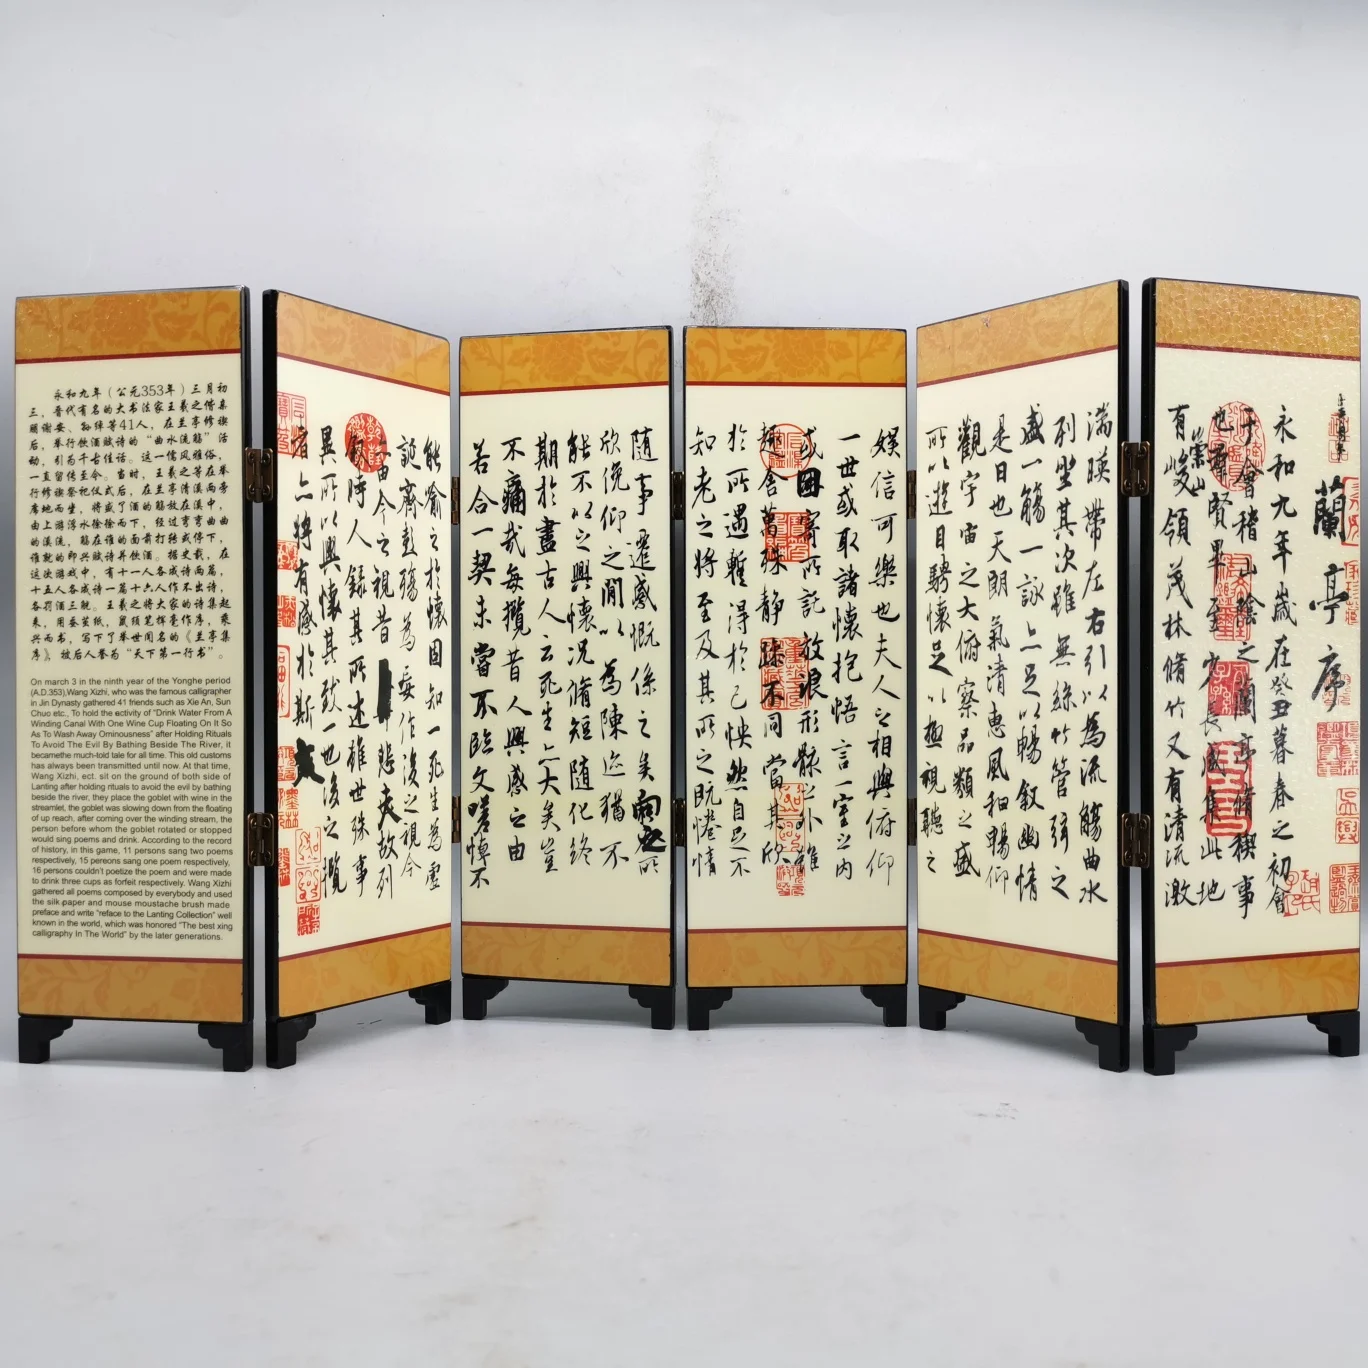 蘭亭序
永和九年歲在癸丑暮春之初會
于會稽山陰之蘭亭脩禊事
也羣賢畢至少長咸集此地
有崇山峻領茂林脩竹又有清流激
湍暎帶左右引以為流觴曲水
列坐其次雖無絲竹管弦之
盛一觴一詠亦足以暢敘幽情
是日也天朗氣清惠風和暢仰
觀宇宙之大俯察品類之盛
所以遊目騁懷足以極視聽之
娛信可樂也夫人之相與俯仰
一世或取諸懷抱悟言一室之內
或因寄所託放浪形骸之外雖
趣舍萬殊靜躁不同當其欣
於所遇暫得於己怏然自足不
知老之將至及其所之既惓情
隨事遷感慨係之矣向之所
欣俛仰之閒以為陳迹猶不
能不以之興懷況脩短隨化終
期於盡古人云死生亦大矣豈
不痛哉每攬昔人興感之由
若合一契未嘗不臨文嗟悼不
能喻之於懷固知一死生為虛
誕齊彭殤為妄作後之視今
亦由今之視昔悲夫故列
敘時人錄其所述雖世殊事
異所以興懷其致一也後之攬
者亦將有感於斯文
永和九年（公元353年）三月初
三，晋代有名的大书法家王羲之偕亲
朋谢安、孙绰等41人，在兰亭修禊
后，举行饮酒赋诗的“曲水流觞”活
动，引为千古佳话。这一儒风雅俗，
一直留传至今。当时，王羲之等在举
行修禊祭祀仪式后，在兰亭清溪两旁
席地而坐，将盛了酒的觞放在溪中，
由上游浮水徐徐而下，经过弯弯曲曲
的溪流，觞在谁的面前打转或停下，
谁就的即兴赋诗并饮酒。据史载，在
这次游戏中，有十一人各成诗两篇，
十五人各成诗一篇十六人作不出诗，
各罚酒三觥。王羲之将大家的诗集起
来，用蚕茧纸，鼠须笔挥毫作序，乘
兴而书，写下了举世闻名的《兰亭集
序》，被后人誉为“天下第一行书”。
On march 3 in the ninth year of the Yonghe period
(A.D.353),Wang Xizhi, who was the famous calligrapher
in Jin Dynasty gathered 41 friends such as Xie An, Sun
Chuo etc., To hold the ectivity of “Drink Water From A
Winding Canal With One Wine Cup Floating On It So
As To Wash Away Ominousness” after Holding Rituals
To Avoid The Evil By Bathing Beside The River, it
becamethe much-told tale for all time. This old customs
has always been transmitted until now. At that time,
Wang Xizhi, ect. sit on the ground of both side of
Lanting after holding rituals to avoid the evil by bathing
beside the river, they place the goblet with wine in the
streamlet, the goblet was slowing down from the floating
of up reach, after coming over the winding stream, the
person before whom the goblet rotated or stopped
would sing poems and drink. According to the record
of history, in this game, 11 persons sang two poems
respectively, 15 pereons sang one poem respectively,
16 persons couldn't poetize the poem and were made
to drink three cups as forfeit respectively. Wang Xizhi
gathered all poems composed by everybody and used
the silk paper and mouse moustache brush made
preface and write “reface to the Lanting Collection” well
known in the world, which was honored “The best xing
calligraphy In The World” by the later generations.